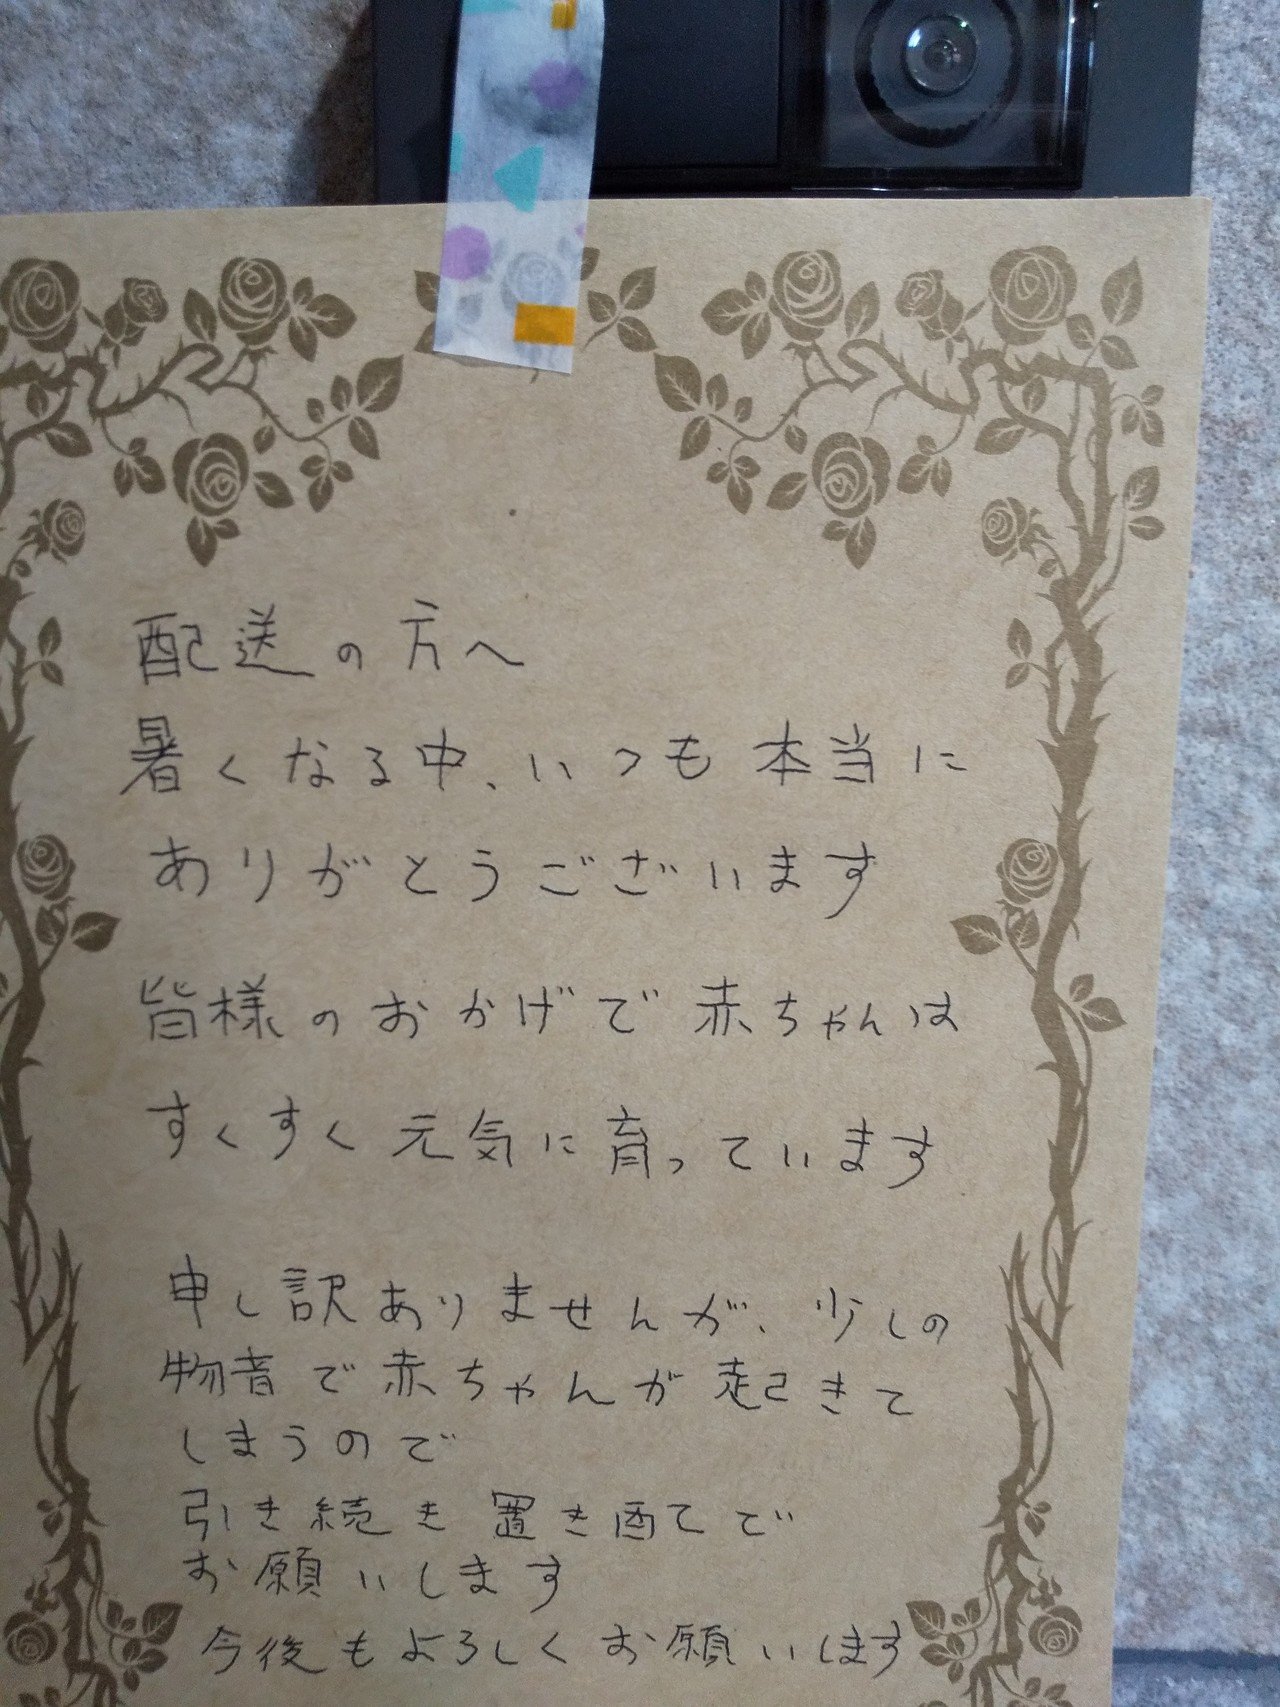 配送の方へ
暑くなる中、いつも本当に
ありがとうございます
皆様のおかげで赤ちゃんは
すくすく元気に育っています
申し訳ありませんが、少しの
物音で赤ちゃんが起きて
しまうので
引き続き置き配てで
お願いします
今後もよろしくお願いします